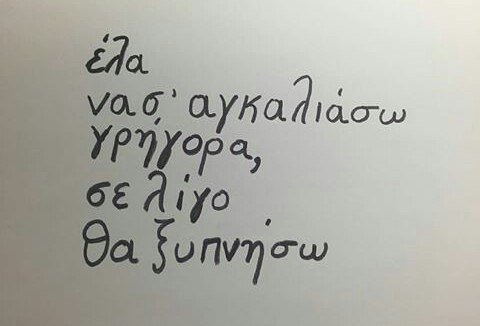 έλα
να σ' αγκαλιάσω
γρήγορα,
σε λίγο
θα ξυπνήσω